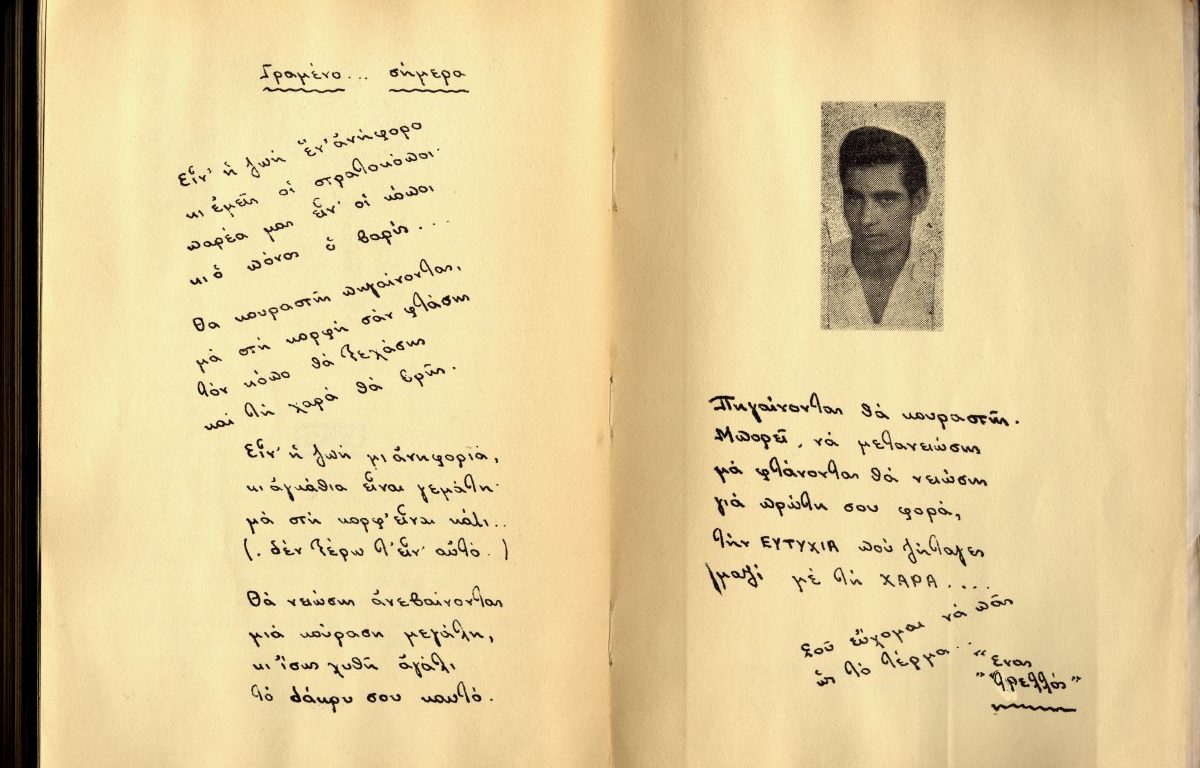 Γραμένο... σήμερα
Εἶν' ἡ ζωή ἕν' ἀνήφορο
κι ἐμεῖς οἱ στρατοκόποι·
παρέα μας εἶν' οἱ κόποι
κι ὁ πόνος ὁ βαρύς...
Θα κουραστῆς πηγαίνοντας,
μά στή κορφή σάν φτάσης
τόν κόπο θά ξεχάσης
καί τή χαρά θά βρῆς.
Εἶν' ἡ ζωή μι ἀνηφοριά,
κι ἀγκάθια εἶναι γεμάτη·
μά στή κορφ' εἶναι κάτι..
(. δέν ξέρω τ' εἶν' αὐτό. )
Θά νειώσης ἀνεβαίνοντας
μιά κούραση μεγάλη,
κι ἴσως χυθῆ ἀγάλι
τό δάκρυ σου καυτό.
Πηγαίνοντας θά κουραστῆς.
Μπορεῖ, νά μετανειώσης
μά φτάνοντας θά νειώσης
γιά πρώτη σου φορά,
τήν ΕΥΤΥΧΙΑ πού ζήταγες
μαζί μέ τή ΧΑΡΑ....
Σοῦ εὔχομαι νά πᾶς
ὡς τό τέρμα...
"Ένας
"τρελλός"